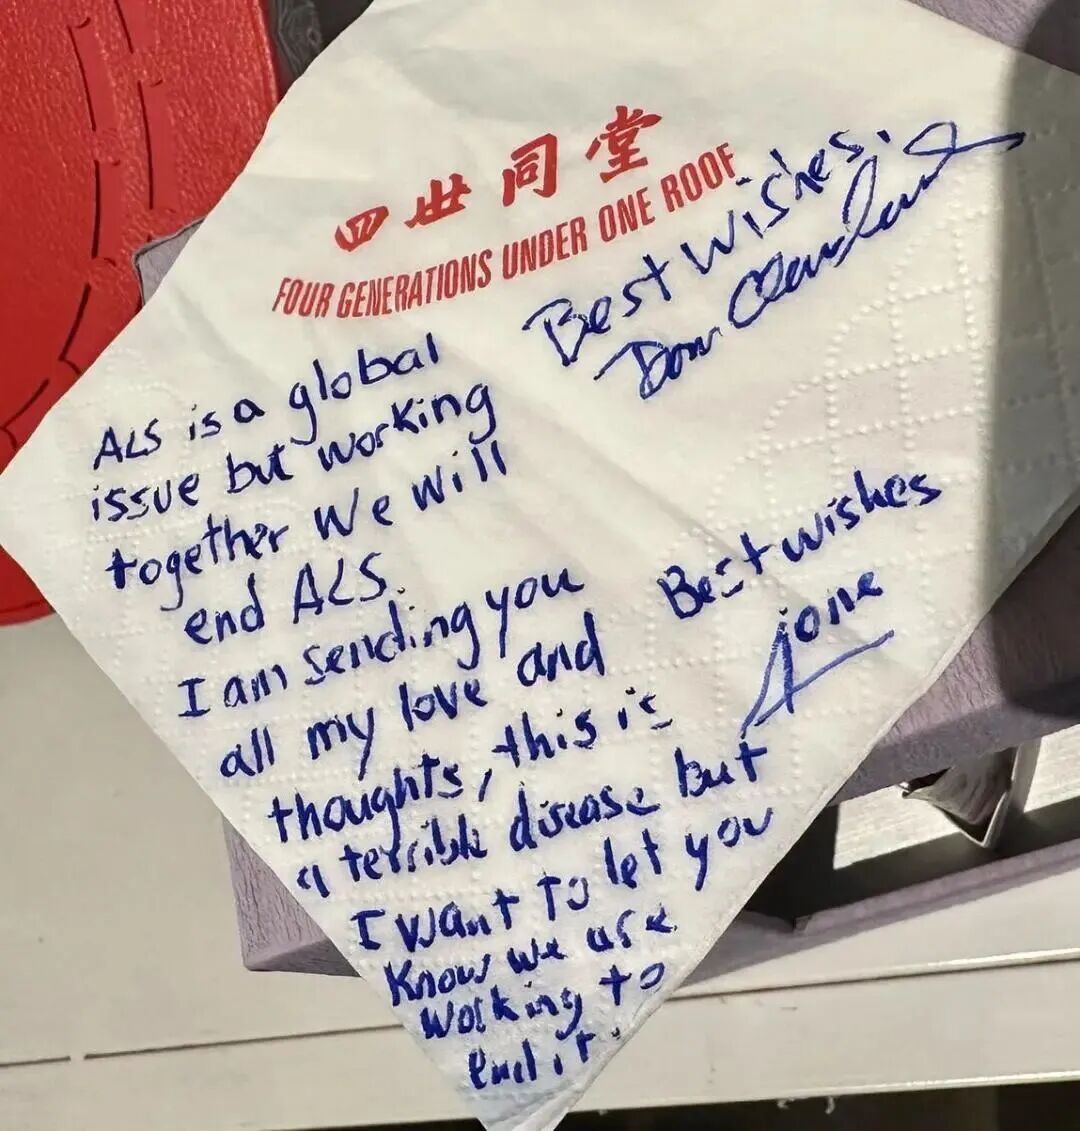 四世同堂
FOUR GENERATIONS UNDER ONE ROOF
Best wishes.
Don Cleveland
ALS is a global
issue but working
together we will
end ALS.
I am sending you
all my love and
thoughts, this is
a terrible disease but
I want to let you
know we are
working to
end it.
Best wishes